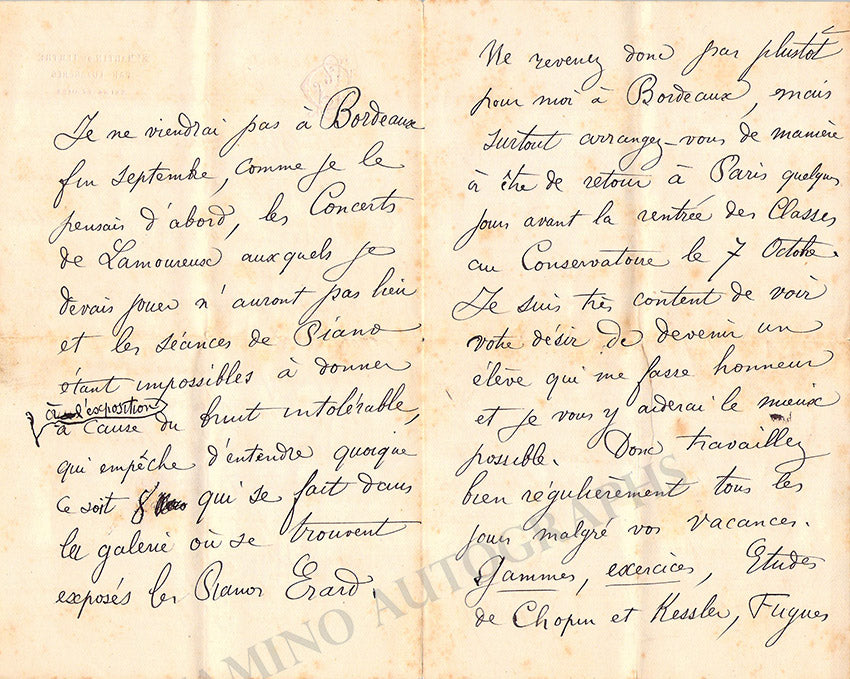 Je ne viendrai pas à Bordeaux
fin septembre, comme je le
pensais d'abord, les Concerts
de Lamoureux auxquels je
devais jouer n'auront pas lieu
et les séances de Piano
étant impossibles à donner
à l'exposition
à cause du bruit intolérable,
qui empêche d'entendre quoique
ce soit qui se fait dans
la galerie où se trouvent
exposés les Pianos Erard.
Ne revenez donc pas plustôt
pour moi à Bordeaux, mais
surtout arrangez-vous de manière
à être de retour à Paris quelques
jours avant la rentrée des Classes
au Conservatoire le 7 Octobre.
Je suis très content de voir
votre désir de devenir un
élève qui me fasse honneur
et je vous y aiderai le mieux
possible. Donc travaillez
bien régulièrement tous les
jours malgré vos vacances.
Gammes, exercices, Etudes
de Chopin et Kessler, Fugues
TAMINO AUTOGRAPHS